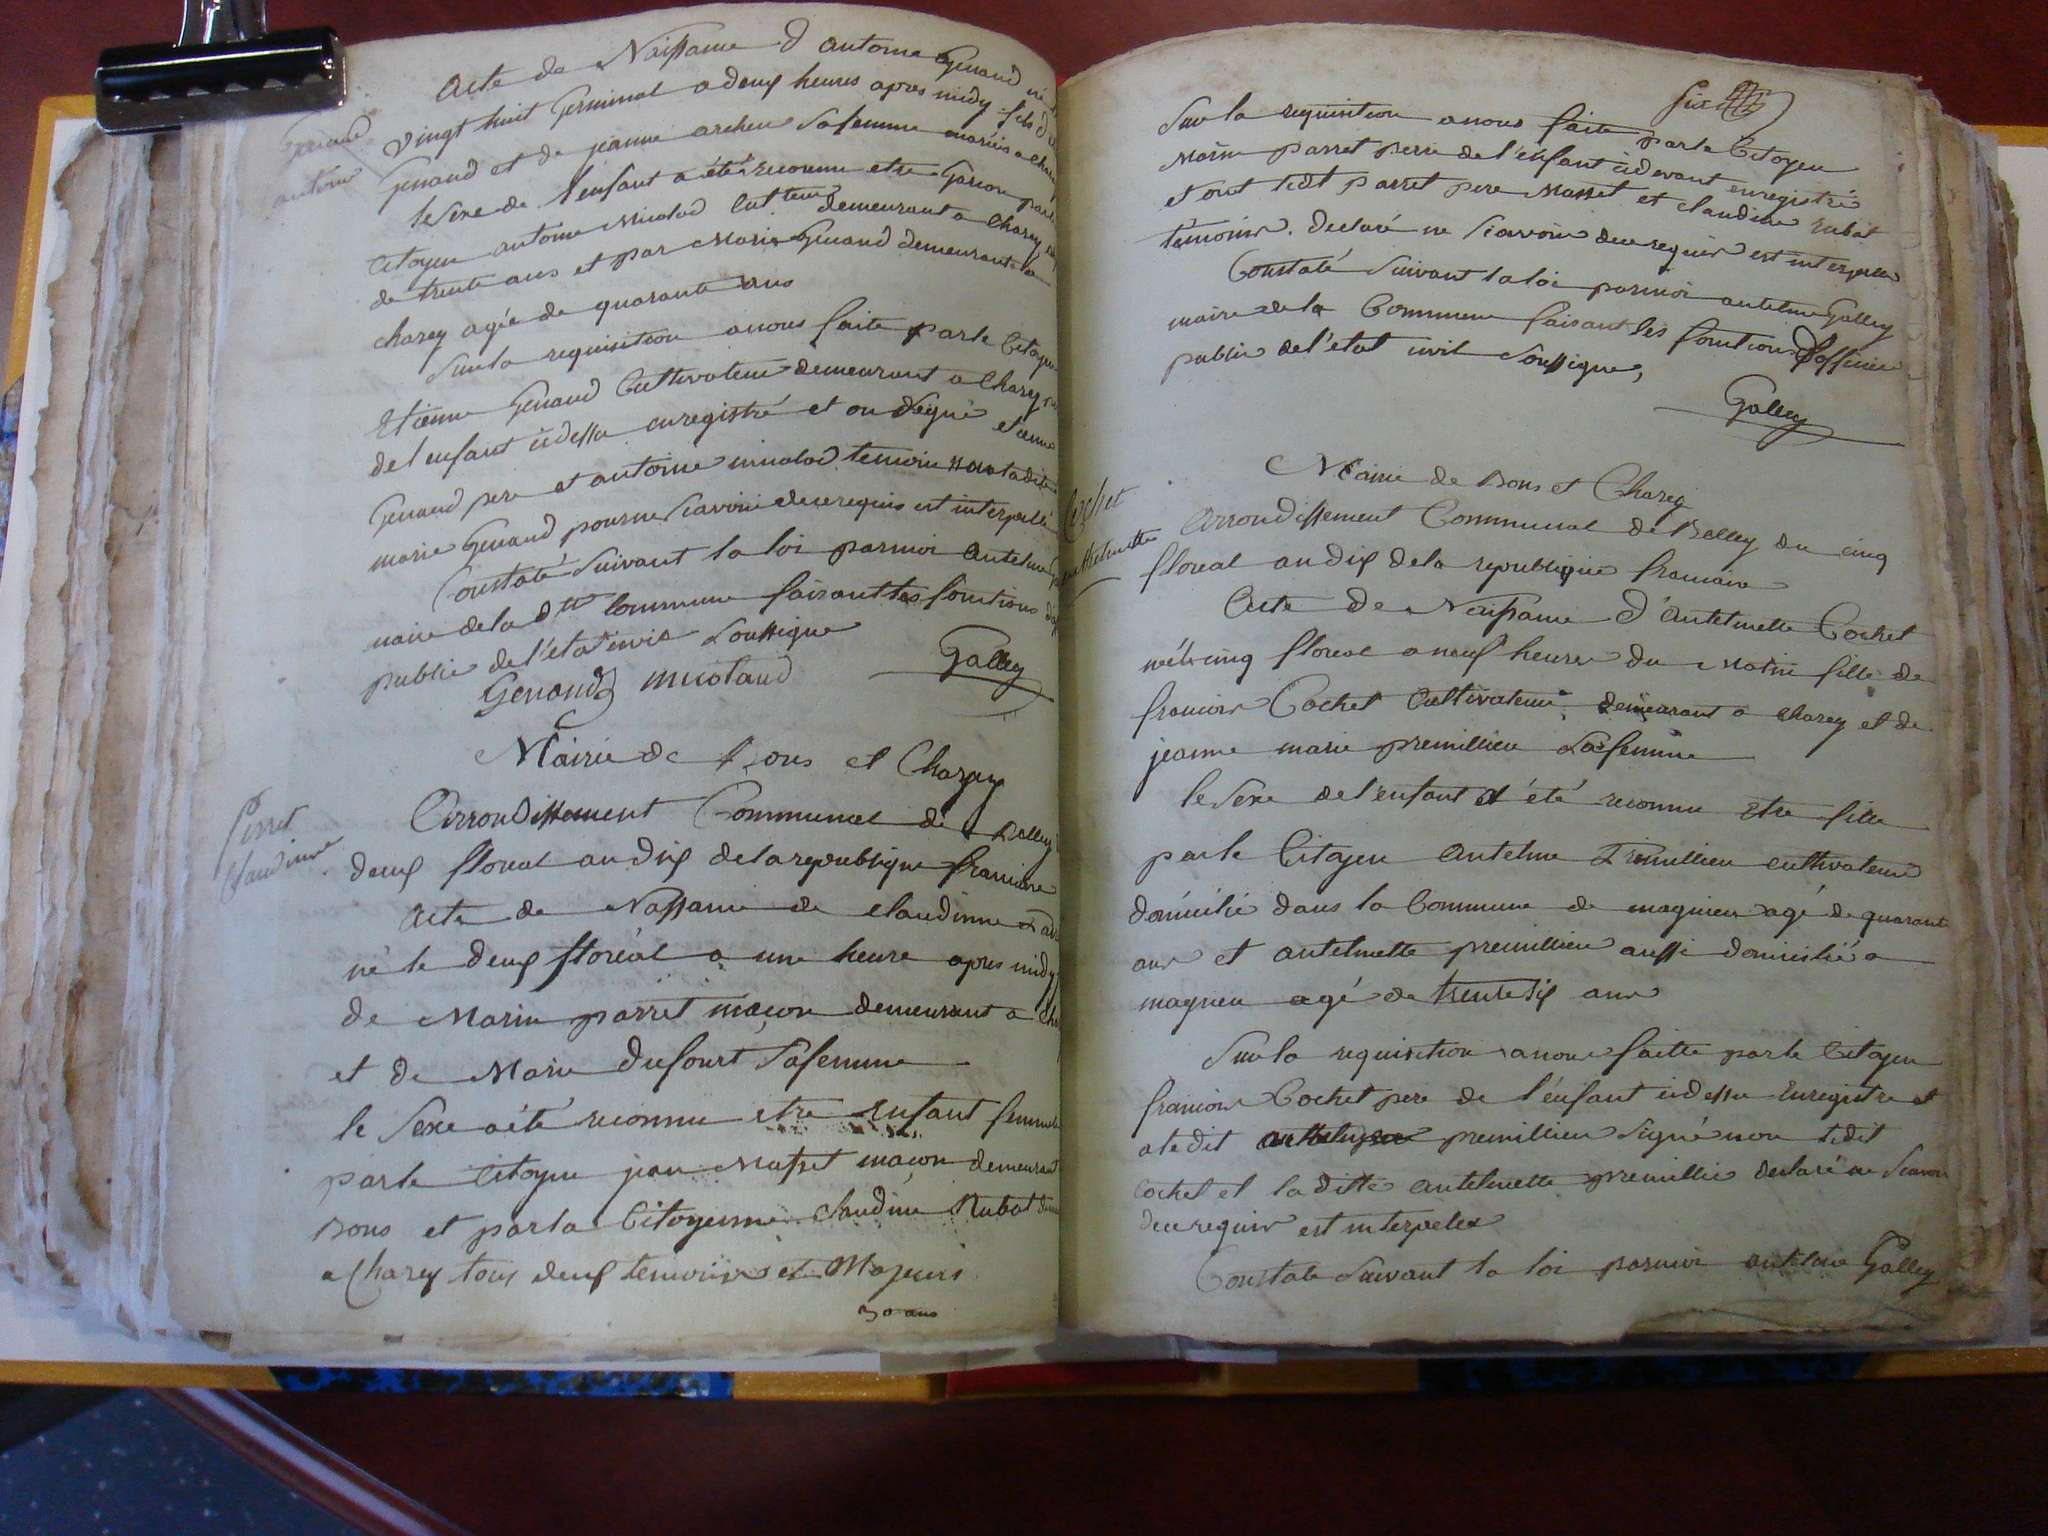 Acte de Naissance d antoine Genand né
vingt huit Germinal a deux heures apres midy fils d'
Genand et de jeanne sa femme mariés a
Genand
antoine
le sexe de l'enfant a été reconnu etre Garcon par le
Citoyen antoine Micolod Cultteur demeurant a Charey
de trente ans et par Marie Genand demeurante a
charey agée de quarante ans
Sur la requisition a nous faite par le Citoyen
Etienne Genand Cultivateur demeurant a Charey
de l enfant cidessu enregistré et on Signé etienne
Genand pere et antoine micolod temoin non ladite
marie Genand pour ne Scavoir de ce requis est interpelé
Constaté Suivant la loi par moi Antelme
maire de la dtte Commune faisant les fonctions d'
public de l'état civil Soussigne
Genand micolaud Galley
Mairie de Bons et Charey
Perret
Claudinne
Arrondissement Communal de Belley
deux floreal an dix de la republique francaise
Acte de Nassance de claudinne
né le deux floréal a une heure apres midy
de Marin parret maçon demeurant a
et de Marie dufourt Sa femme
le Sexe a été reconnu etre enfant femmelle
par le Citoyen jean Masset maçon demeurant
Bons et par la Citoyenne Claudine Rubat
a Charey tous deux temoins et Majeurs
30 ans
Sur la requisition a nous faite par le Citoyen
Marin parret perre de l'enfant cidevant enregistré
et ont tedt parret pere Masset et claudine rubat
témoins. declaré ne Scavoir de ce requis est interpellés
Constaté Suivant la loi par moi antelme Galley
maire de la Commune faisant les fonctions d'officier
public de l'état civil Soussigne,
Galley
Mairie de Bons et Charey
Cochet
Antelmette
Arrondissement Communal de Belley du cinq
floreal an dix de la republique francaise
Acte de Naissance d'Antelmette Cochet
née le cinq floreal a neuf heures du Matin fille de
francois Cochet Cultivateur demeurant a Charey et de
jeanne marie premillieu Sa femme
le Sexe de l'enfant a été reconnu Etre fille
par le Citoyen Antelme Premillieu cultivateur
domicilié dans la Commune de magnieu agé de quarante
ans et antelmette premillieu aussi domiciliée a
magneu agé de trente six ans
Sur la requisition a nous faitte par le Citoyen
francois Cochet pere de l'énfant cidessu Enregistre et
a ledit premillieu Signé non ledit
Cochet et la ditte antelmette premillie declaré ne Scavoir
de ce requis est interpelés
Constate Suivant la loi par moi antelme Galley